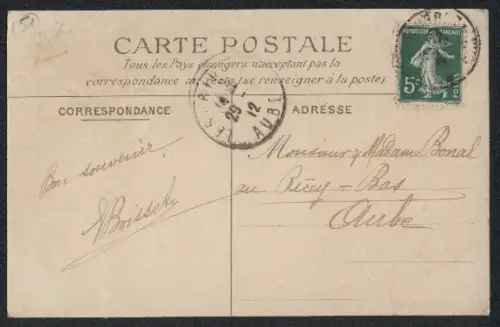 CARTE POSTALE
Tous les Pays étrangers n'acceptant pas la
correspondance au recto (se renseigner à la poste)
CORRESPONDANCE
ADRESSE
REPUBLIQUE FRANÇAISE
5c
POSTES
29
12
AUBE
Bon souvenir
Monsieur, Madame Bonal
au Ricey-Bas
Aube